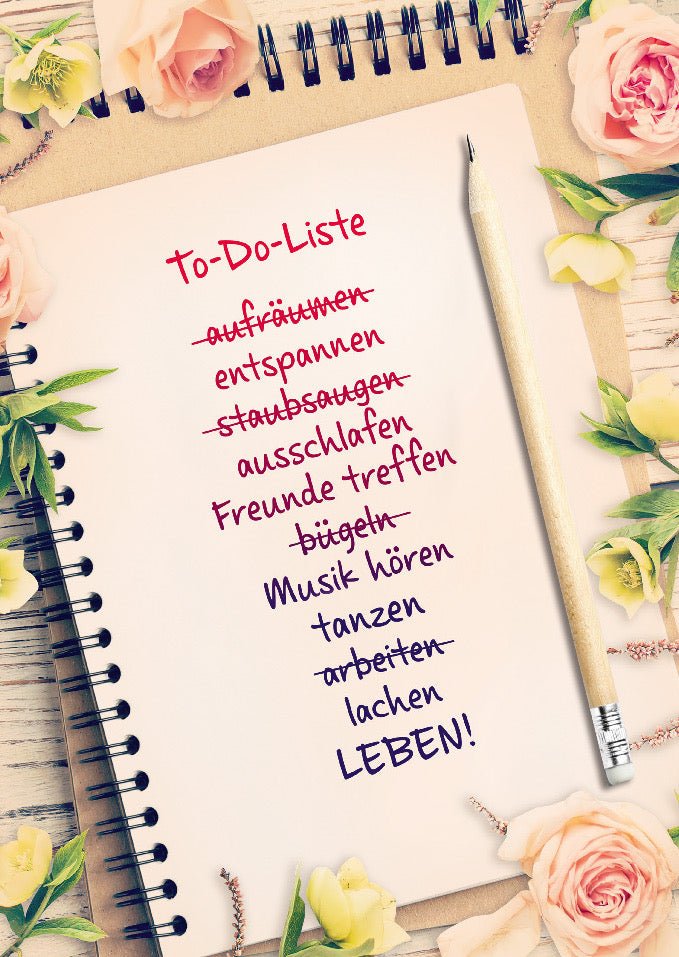 To-Do-Liste
aufräumen
entspannen
staubsaugen
ausschlafen
Freunde treffen
bügeln
Musik hören
tanzen
arbeiten
lachen
LEBEN!